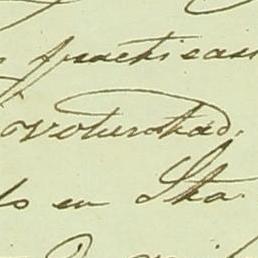 practican
voluntad,
en Sta.